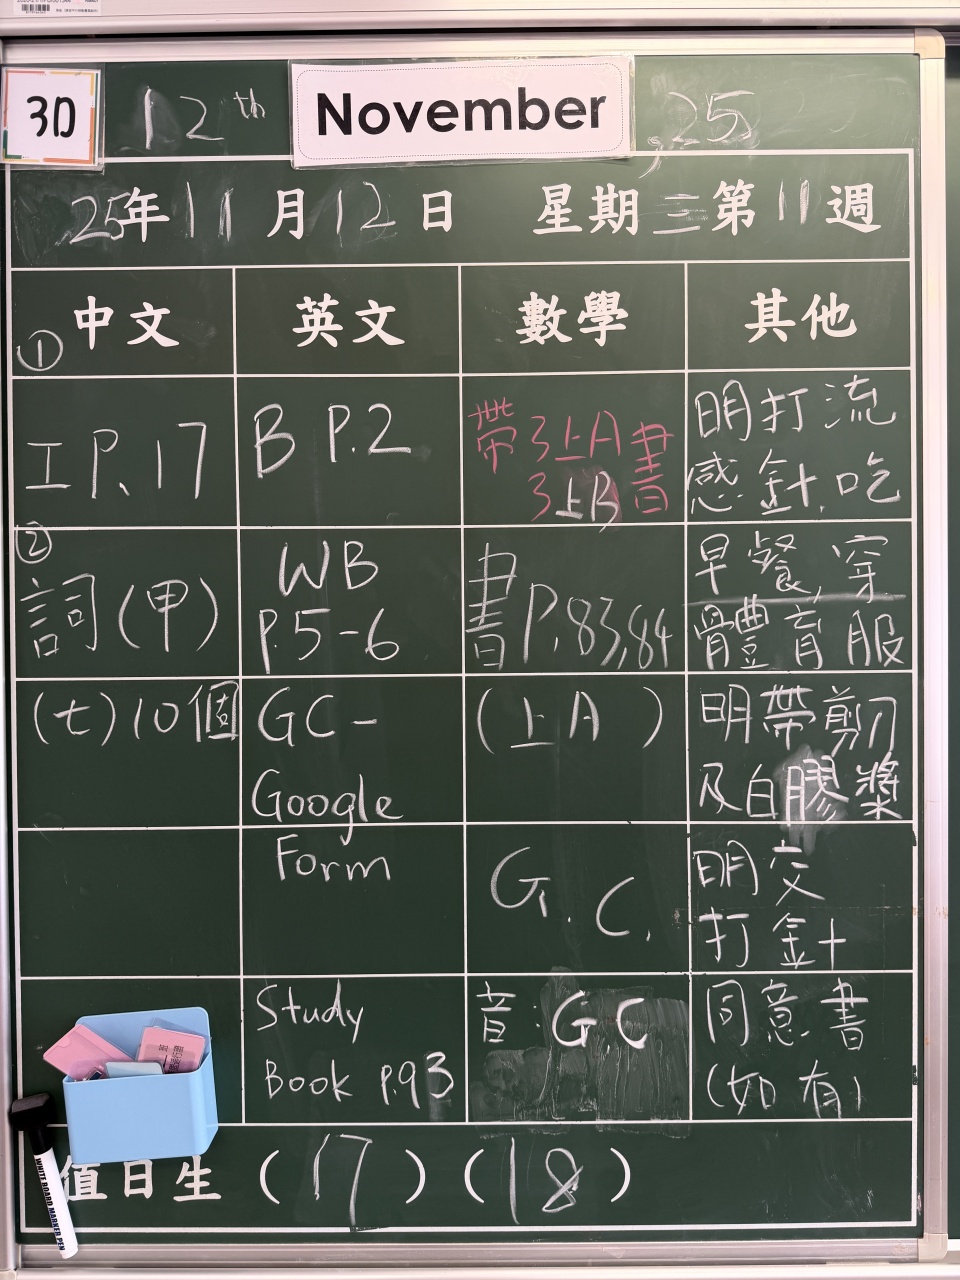 3D
12th November, 25
25年11月12日 星期三第11週
中文 英文 數學 其他
①
工 P.17
②
詞(甲)
(七)10個
B P.2
WB
P.5-6
GC-
Google
Form
Study
Book P.93
帶3上A書
3上B
書P.83,84
(上A)
G.C.
音:GC
明打流
感針,吃
早餐,穿
體育服
明帶剪刀
及白膠漿
明交
打針
同意書
(如有)
值日生 (17)(18)
WHITE BOARD MARKER PEN